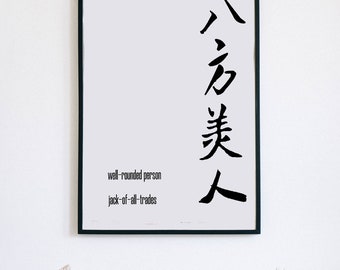 八方美人
well-rounded person
jack-of-all-trades